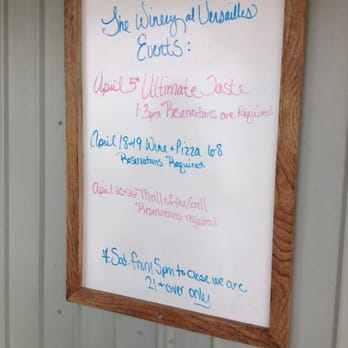 The Winery at Versailles
Events:
April 5th Ultimate Taste
1-3pm Reservations are Required!
April 18-19 Wine & Pizza 6-8
Reservations Required
April Thrill of the Grill
Reservations required
* Sat. from 5pm to close we are
21 & over only